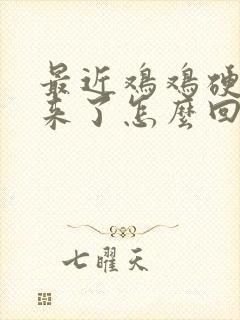 最近鸡鸡硬
来了怎麼回
七曜天